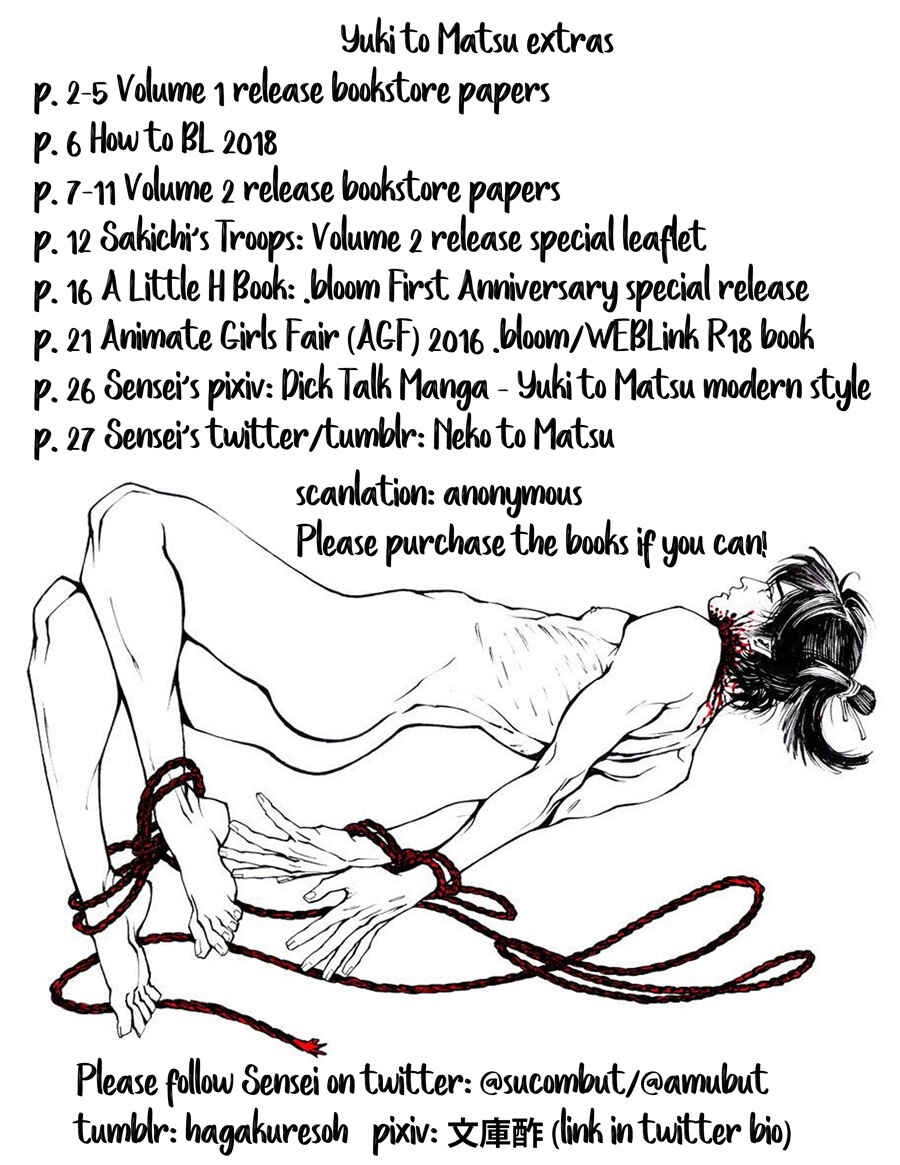 Yuki to Matsu extras
p. 2-5 Volume 1 release bookstore papers
p. 6 How to BL 2018
p. 7-11 Volume 2 release bookstore papers
p. 12 Sakichi's Troops: Volume 2 release special leaflet
p. 16 A Little H Book: .bloom First Anniversary special release
p. 21 Animate Girls Fair (AGF) 2016 .bloom/WEBLink R18 book
p. 26 Sensei's pixiv: Dick Talk Manga - Yuki to Matsu modern style
p. 27 Sensei's twitter/tumblr: Neko to Matsu
scanlation: anonymous
Please purchase the books if you can!
Please follow Sensei on twitter: @sucombut/@amubut
tumblr: hagakuresoh pixiv: 文庫酢 (link in twitter bio)